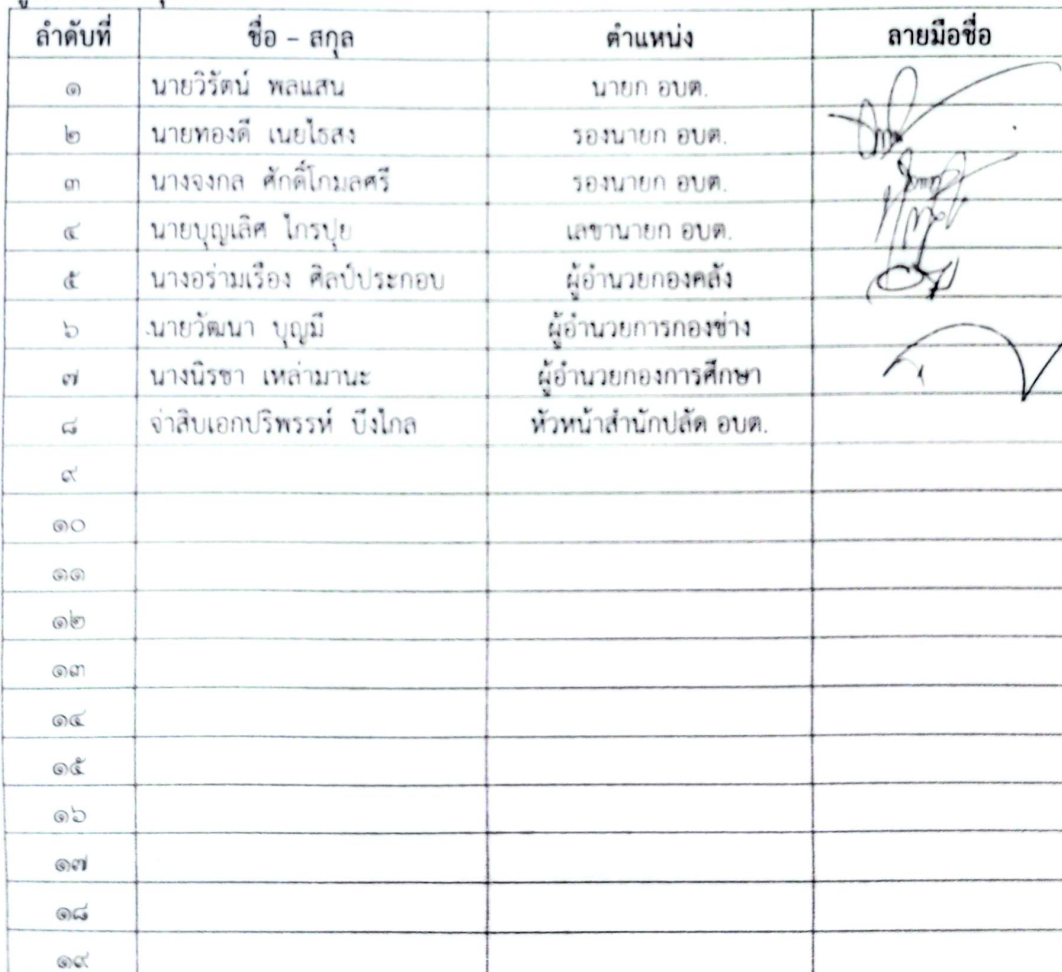 ลำดับที่ ชื่อ – สกุล ตำแหน่ง ลายมือชื่อ
๑ นายวิรัตน์ พลแสน นายก อบต.
๒ นายทองดี เนยไธสง รองนายก อบต.
๓ นางจงกล ศักดิ์โกมลศรี รองนายก อบต.
๔ นายบุญเลิศ ไกรปุย เลขานายก อบต.
๕ นางอร่ามเรือง ศิลป์ประกอบ ผู้อำนวยกองคลัง
๖ นายวัฒนา บุญมี ผู้อำนวยการกองช่าง
๗ นางนิรชา เหล่ามานะ ผู้อำนวยกองการศึกษา
๘ จ่าสิบเอกปริพรรห์ บึงไกล หัวหน้าสำนักปลัด อบต.
๙
๑๐
๑๑
๑๒
๑๓
๑๔
๑๕
๑๖
๑๗
๑๘
๑๙